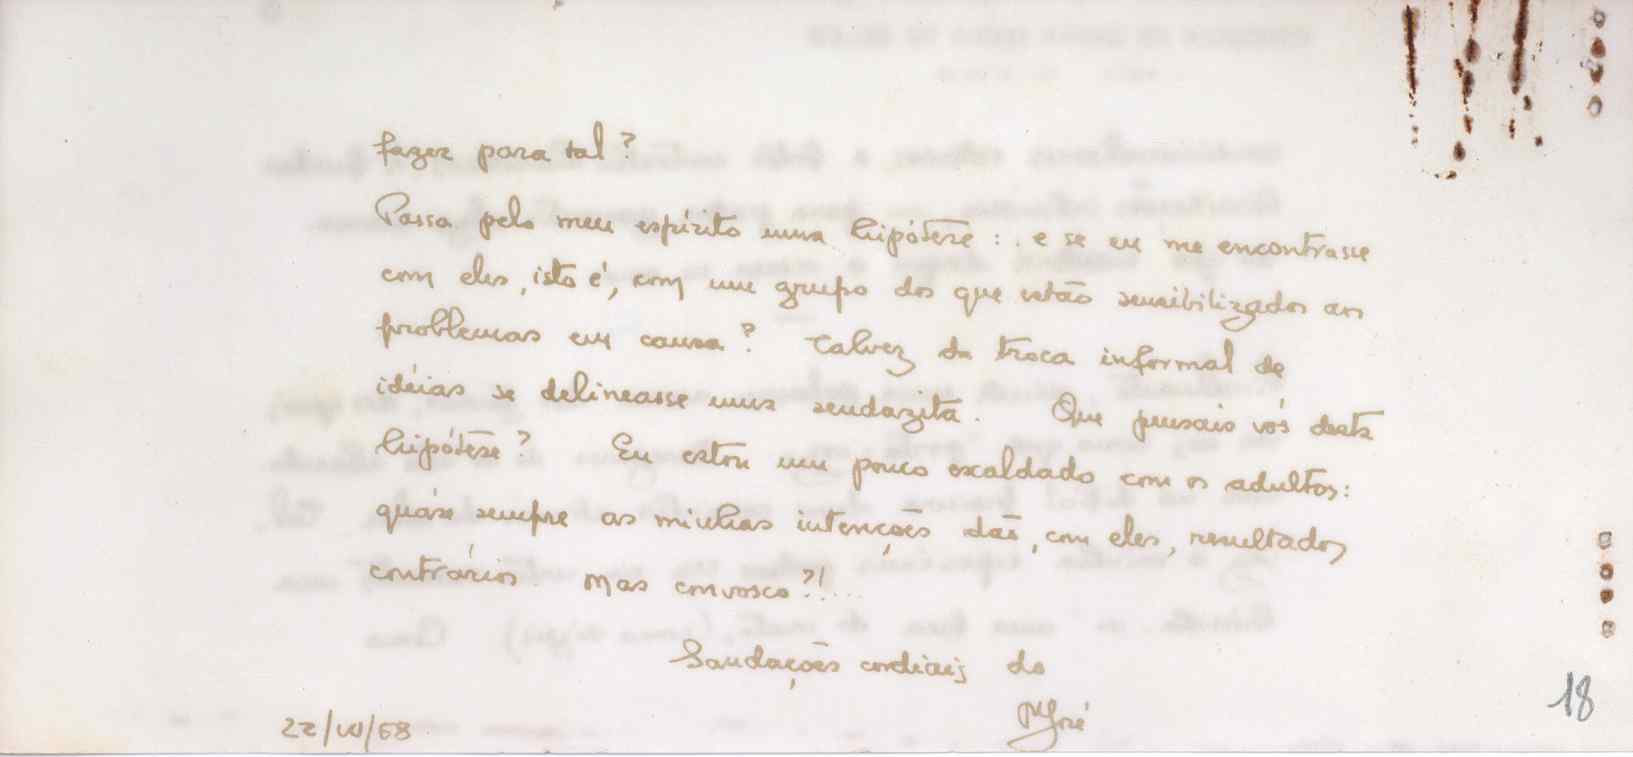 fazer para tal?
Passa pelo meu espírito uma hipótese: e se eu me encontrasse
com eles, isto é, com um grupo dos que estão sensibilizados aos
problemas em causa? Talvez da troca informal de
idéias se delineasse uma sendazita. Que pensais vós desta
hipótese? Eu estou um pouco escaldado com os adultos:
quáse sempre as minhas intenções dão, com eles, resultados
contrários. Mas convosco?!...
Saudações cordiais do
José
22/ /68
18